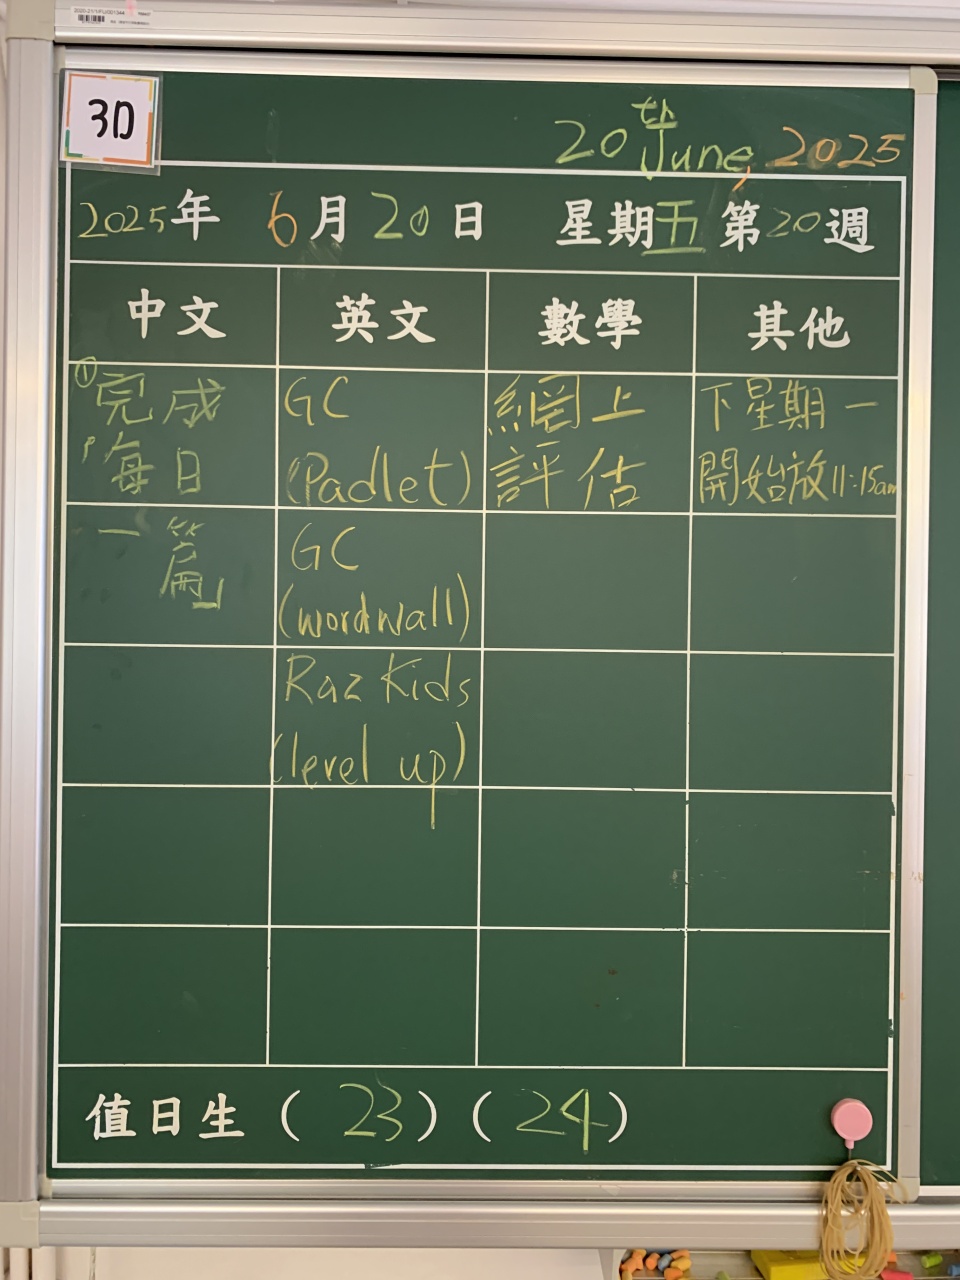 3D
20th June, 2025
2025年 6月20日 星期五 第20週
中文 英文 數學 其他
①完成
「每日
一篇」
GC
(Padlet)
GC
(wordwall)
Raz Kids
(level up)
網上
評估
下星期一
開始放11:15am
值日生 (23)(24)